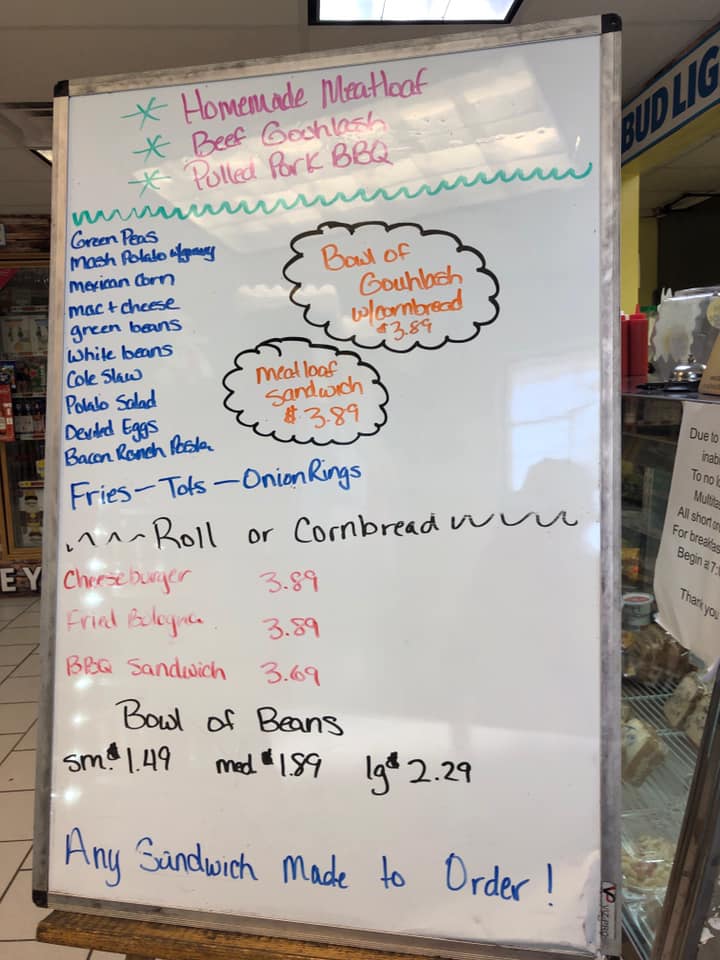 * Homemade Meatloaf
* Beef Gouhlash
* Pulled Pork BBQ
Green Peas
Mash Potato w/gravy
Mexican Corn
mac + cheese
green beans
White beans
Cole Slaw
Potato Salad
Deviled Eggs
Bacon Ranch Pasta
Bowl of
Gouhlash
w/cornbread
$3.89
meatloaf
Sandwich
$3.89
Fries - Tots - Onion Rings
Roll or Cornbread
Cheeseburger 3.89
Fried Bologna 3.89
BBQ Sandwich 3.69
Bowl of Beans
sm. $1.49 med $1.89 lg $2.29
Any Sandwich Made to Order!
BUD LIG
EY
Due to
inab
To no
All short
For breakfas
Begin at 7:
Thank you